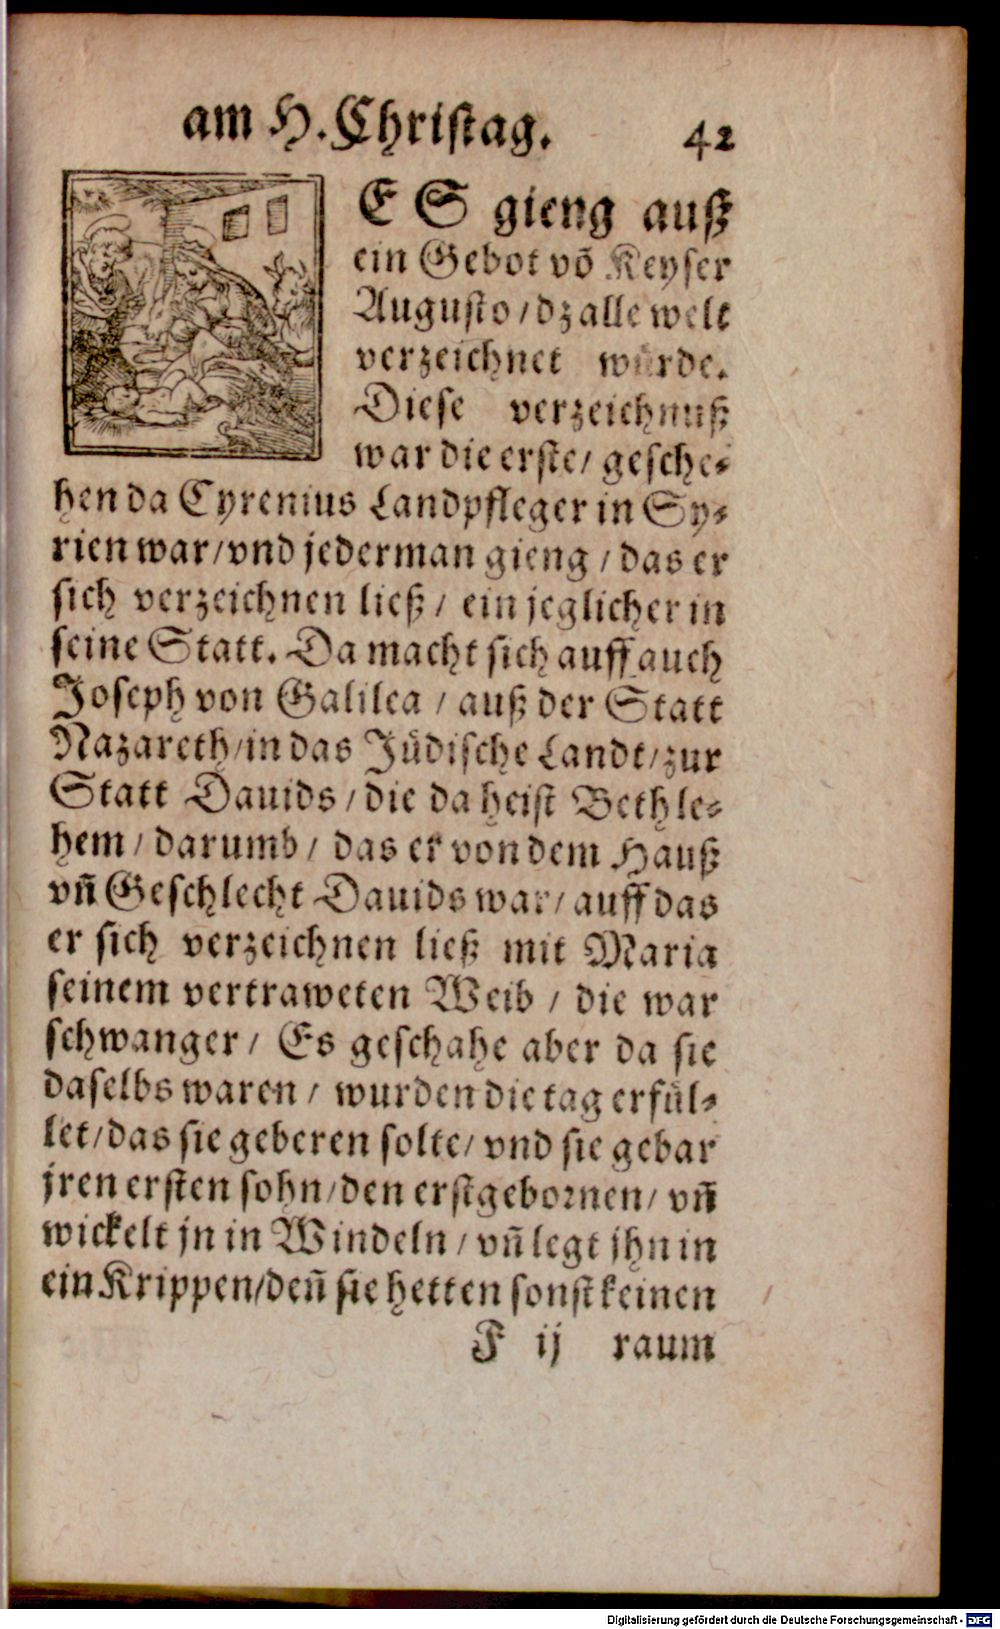 am H. Christag. 42
ES gieng auß
ein Gebot võ Keyser
Augusto / dz alle welt
verzeichnet würde.
Diese verzeichnuß
war die erste / gesche⸗
hen da Cyrenius Landpfleger in Sy⸗
rien war / vnd jederman gieng / das er
sich verzeichnen ließ / ein jeglicher in
seine Statt. Da macht sich auff auch
Joseph von Galilea / auß der Statt
Nazareth / in das Jüdische Landt / zur
Statt Dauids / die da heist Bethle⸗
hem / darumb / das er von dem Hauß
vñ Geschlecht Dauids war / auff das
er sich verzeichnen ließ mit Maria
seinem vertraweten Weib / die war
schwanger / Es geschahe aber da sie
daselbs waren / wurden die tag erfül⸗
let / das sie geberen solte / vnd sie gebar
jren ersten sohn / den erstgebornen / vñ
wickelt jn in Windeln / vñ legt jhn in
ein Krippen / deñ sie hetten sonst keinen
F ij raum
Digitalisierung gefördert durch die Deutsche Forschungsgemeinschaft - DFG